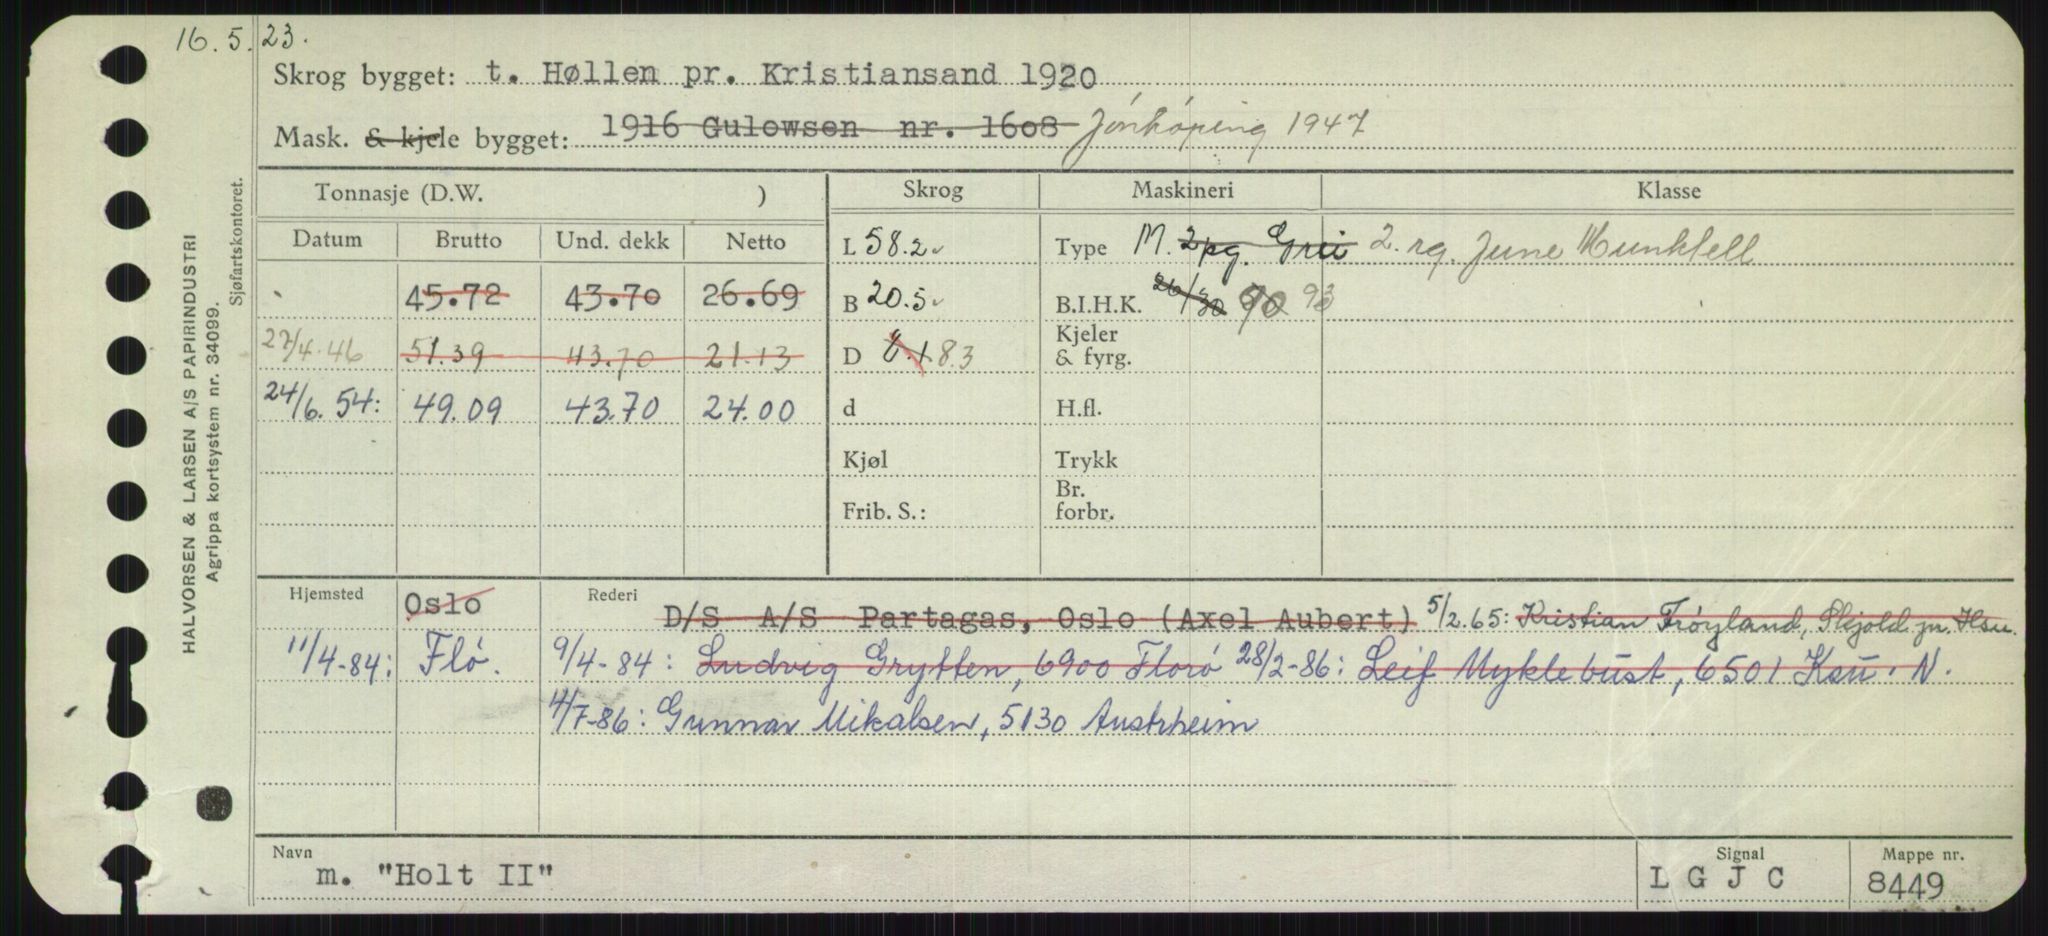 16. 5. 23.
Skrog bygget: t. Høllen pr. Kristiansand 1920
Mask. & kjele bygget: 1916 Gulowsen nr. 1608 Jönköping 1947
Tonnasje (D.W. ) Skrog Maskineri Klasse
Datum Brutto Und. dekk Netto L 58.2 Type M. 2pg. Grei 2. rg. June Munktell
45.72 43.70 26.69 B 20.5 B.I.H.K. 26/30 90 93
27/4.46 51.39 43.70 21.13 D 8.1 8.3 Kjeler & fyrg.
24/6. 54: 49.09 43.70 24.00 d H.fl.
Kjøl Trykk
Frib. S.: Br. forbr.
Hjemsted Oslo Rederi D/S A/S Partagas, Oslo (Axel Aubert) 5/2.65: Kristian Frøyland, Skjold pr. Hsu.
11/4-84: Flö. 9/4-84: Ludvig Grytten, 6900 Florö 28/2-86: Leif Myklebust, 6501 Ksu. N.
4/7-86: Gunnar Mikalsen, 5130 Austrheim
Navn m. "Holt II" Signal L G J C Mappe nr. 8449
HALVORSEN & LARSEN A/S PAPIRINDUSTRI
Agrippa kortsystem nr. 34099.
Sjøfartskontoret.